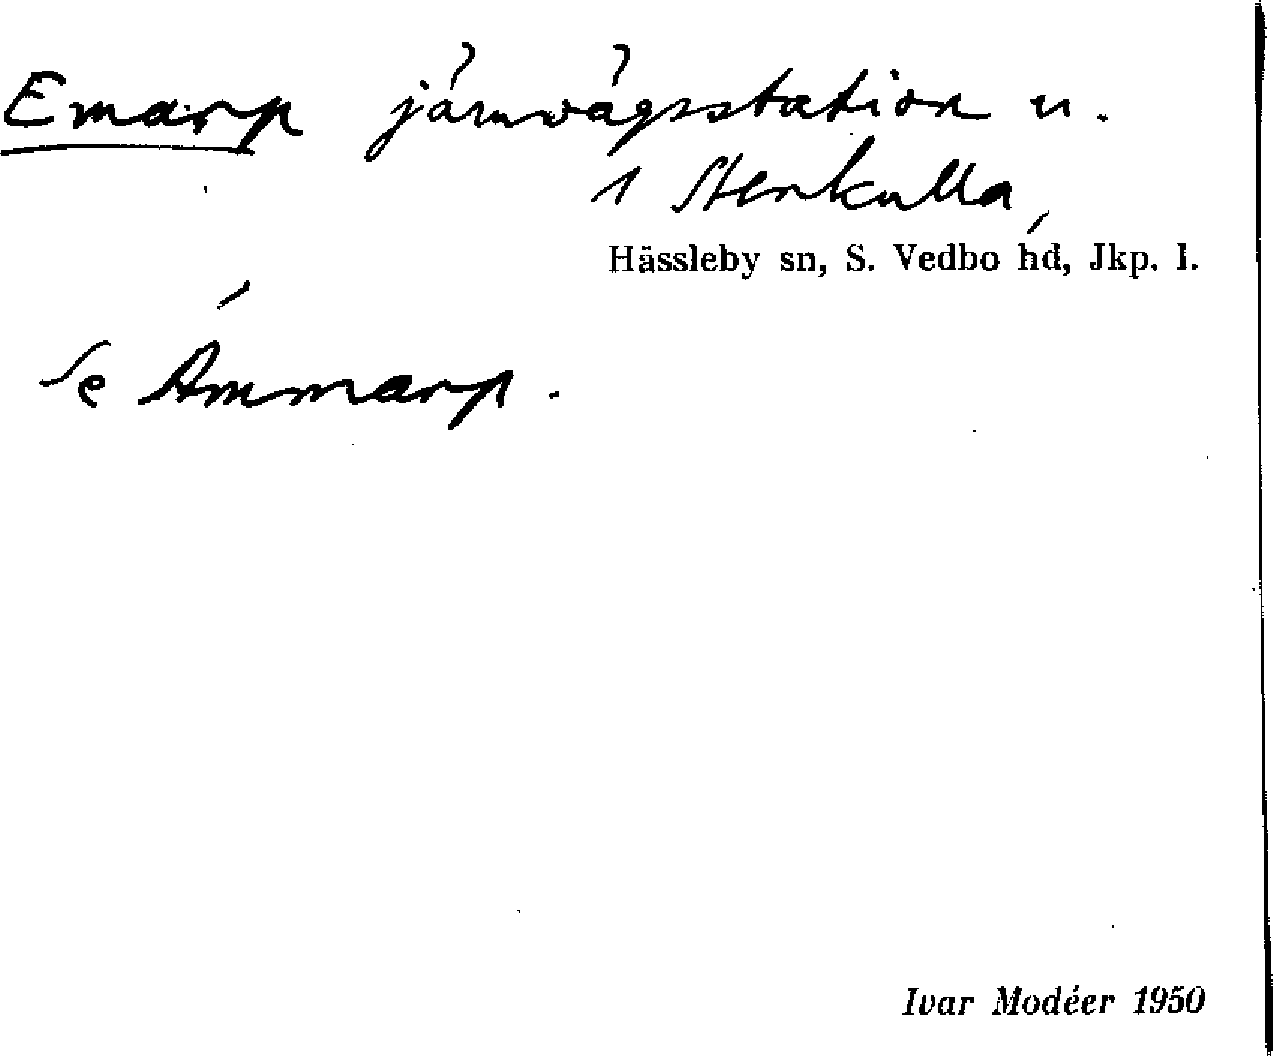 Emarp järnvägsstation u.
1 Stenkulla,
Hässleby sn, S. Vedbo hd, Jkp. l.
Se Ämmarp.
Ivar Modéer 1950